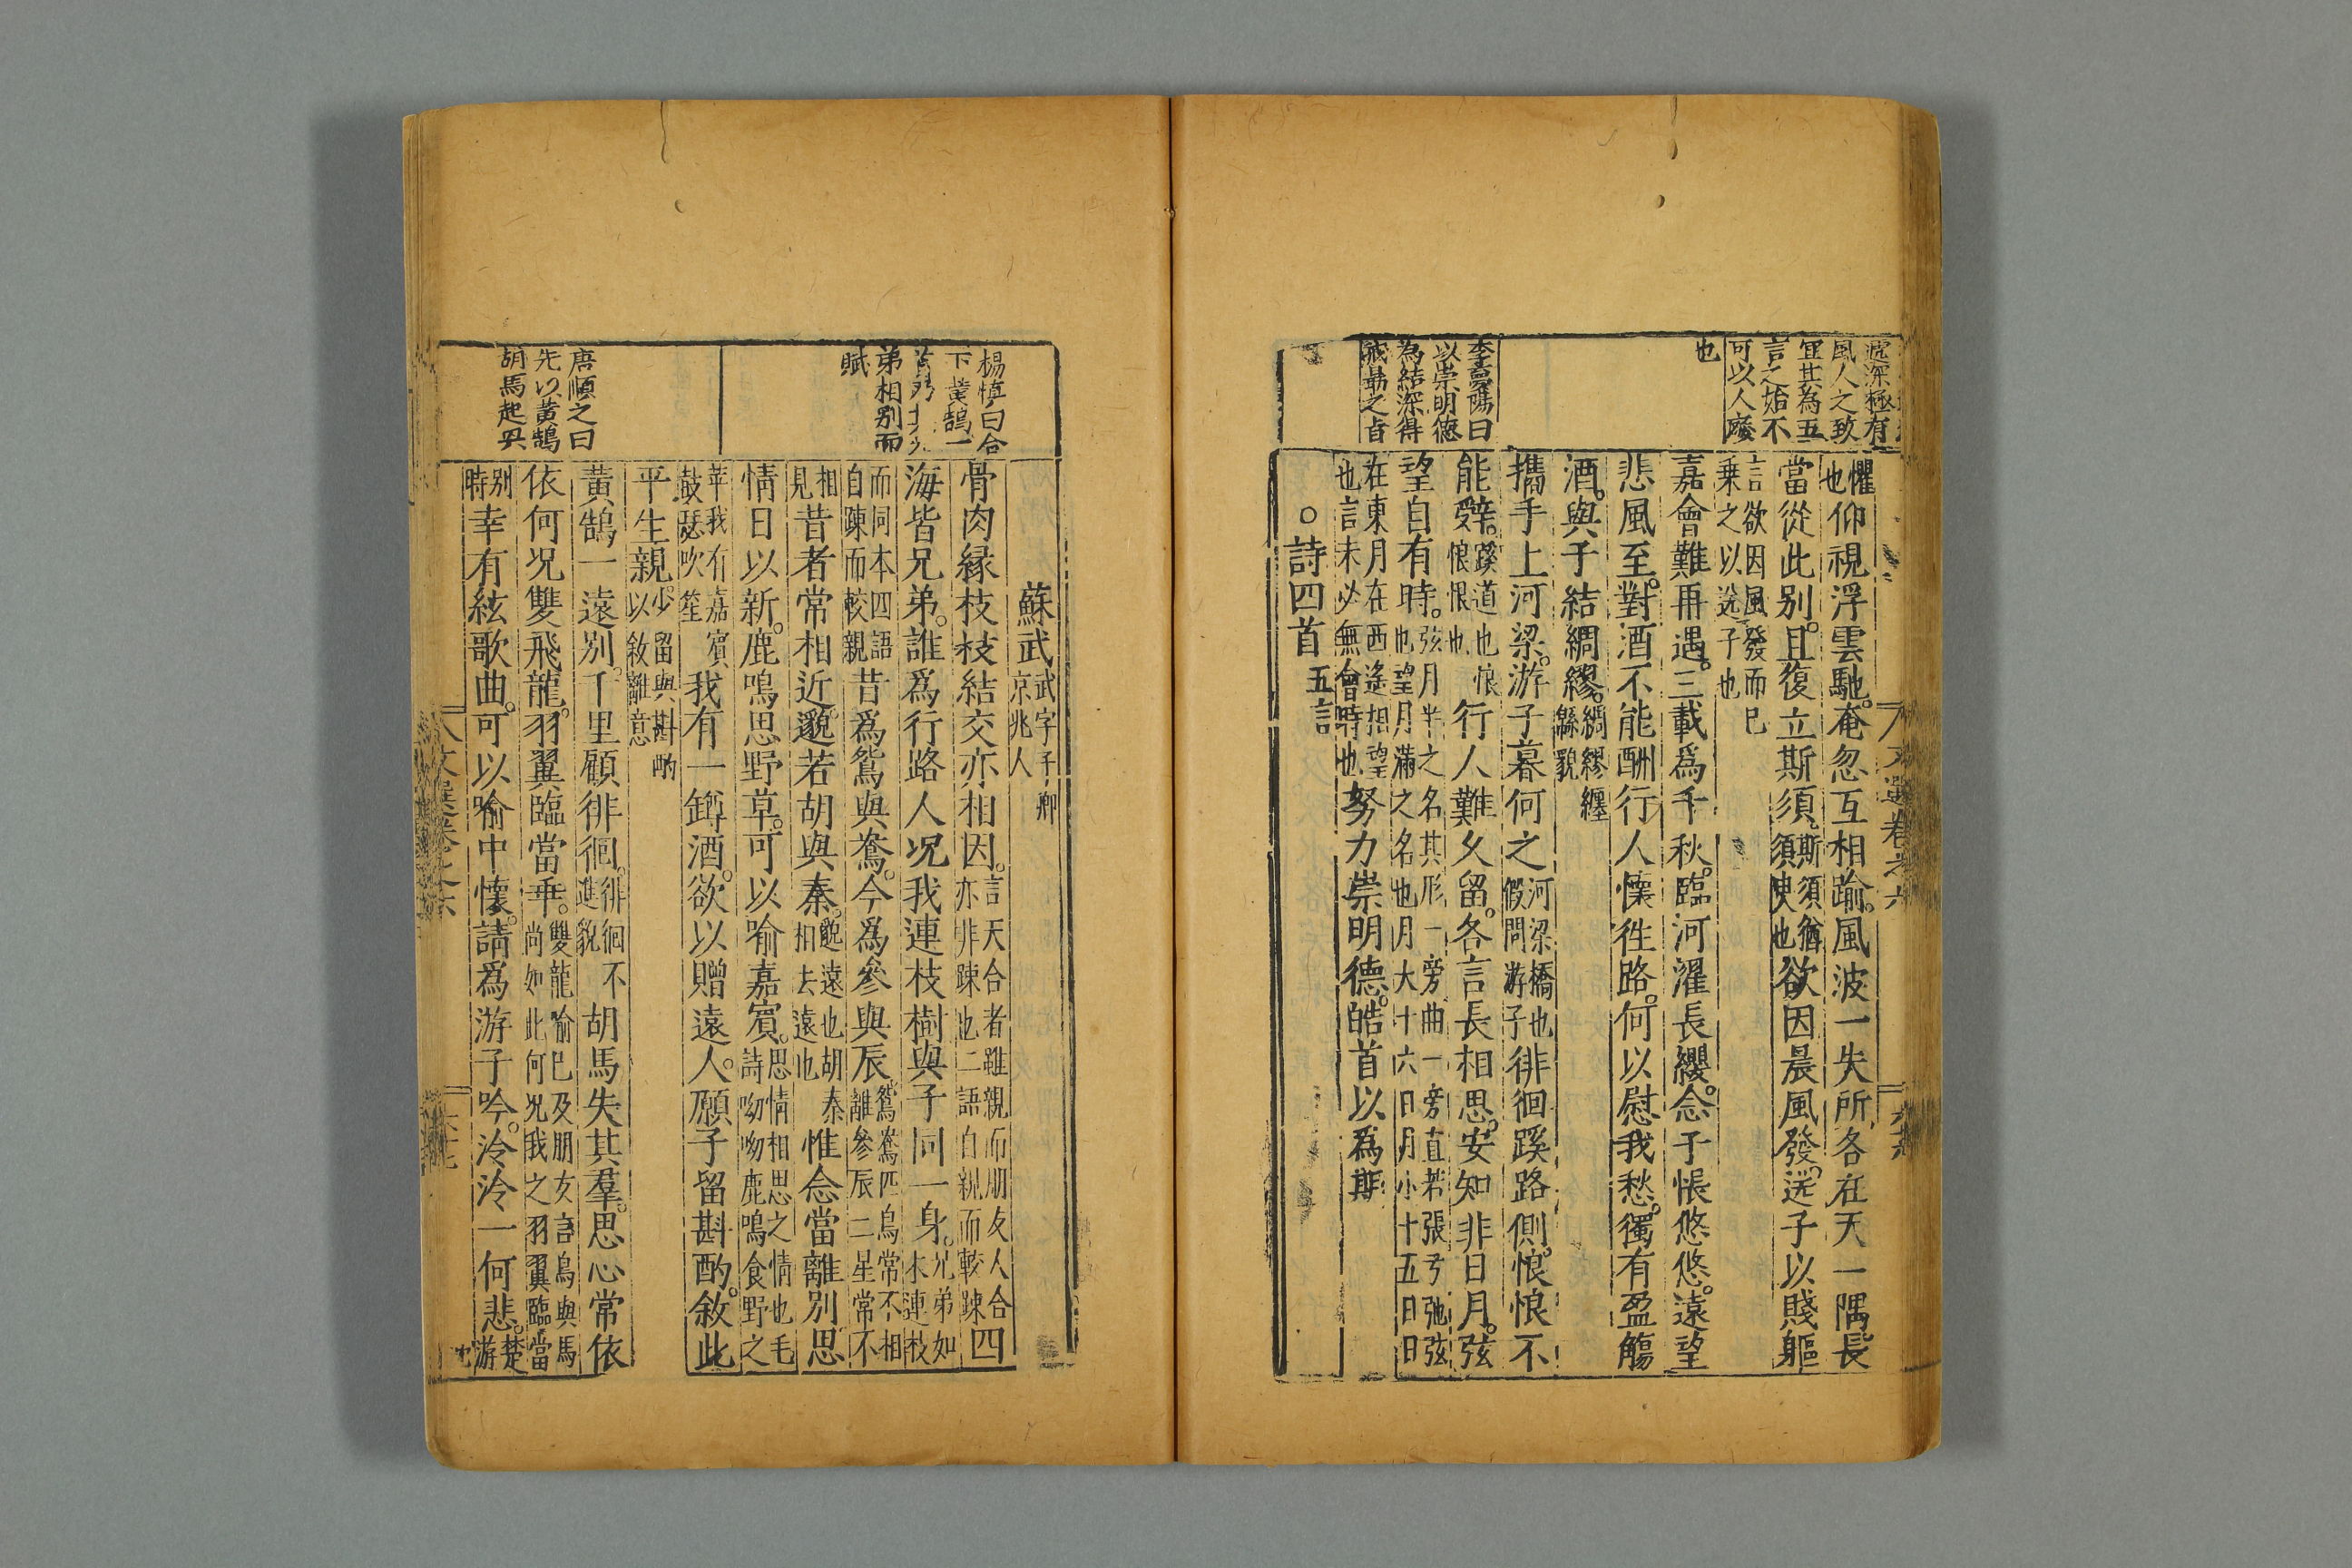 遽深極有
風人之致
宜其為五
言之始不
可以人廢
也
李夢陽曰
以崇明德
為結深得
誠朂之旨
懼
也仰視浮雲馳。奄忽互相踰。風波一失所各在天一隅長
當從此別。且復立斯須。斯須猶
須臾也欲因晨風發。送子以賤軀
言欲因風發而已
乗之以送子也
嘉會難再遇。三載爲千秋。臨河濯長纓。念子悵悠悠。遠望
悲風至。對酒不能酬行人懷徃路。何以慰我愁。獨有盈觴
酒。與子結綢繆。綢繆纒
緜貌
攜手上河梁。游子暮何之河梁橋也
假問游子徘徊蹊路側。悢悢不
能辤。蹊道也悢
悢恨也行人難久留。各言長相思。安知非日月。弦
望自有時。弦月半之名其形一旁曲一旁直若張弓弛弦
也望月滿之名也月大十六日月小十五日日
在東月在西遙相望
也言未必無會時也努力崇明德。皓首以爲期
○詩四首五言
文選卷之六
楊慎曰合
下黃鵠一
弟相別而
賦
唐順之曰
先以黄鵠
胡馬起興
蘇武武字子卿
京兆人
骨肉縁枝枝結交亦相因。言天合者雖親而朋友人合
亦非踈也二語自親而較踈四
海皆兄弟。誰爲行路人况我連枝樹與子同一身。兄弟如
木連枝
而同本四語
自踈而較親昔爲鴛與鴦。今爲參與辰鴛鴦匹鳥常不相
離參辰二星常不
相
見昔者常相近。邈若胡與秦。邈遠也胡秦
相去遠也惟念當離別思
情日以新。鹿鳴思野草。可以喻嘉賓。思情相思之情也毛
詩呦呦鹿鳴食野之
苹我有嘉賓
鼓瑟吹笙我有一罇酒。欲以贈遠人。願子留斟酌。敘此
平生親。少留與斟酌
以敘離意
黃鵠一遠別。千里顧徘徊。徘徊不
進貌胡馬失其羣。思心常依
依何况雙飛龍。羽翼臨當乖。雙龍喻已及朋友言鳥與馬
尚如此何况我之羽翼臨當
别
時幸有絃歌曲。可以喻中懷。請爲游子吟。泠泠一何悲。楚
游
文選卷之六